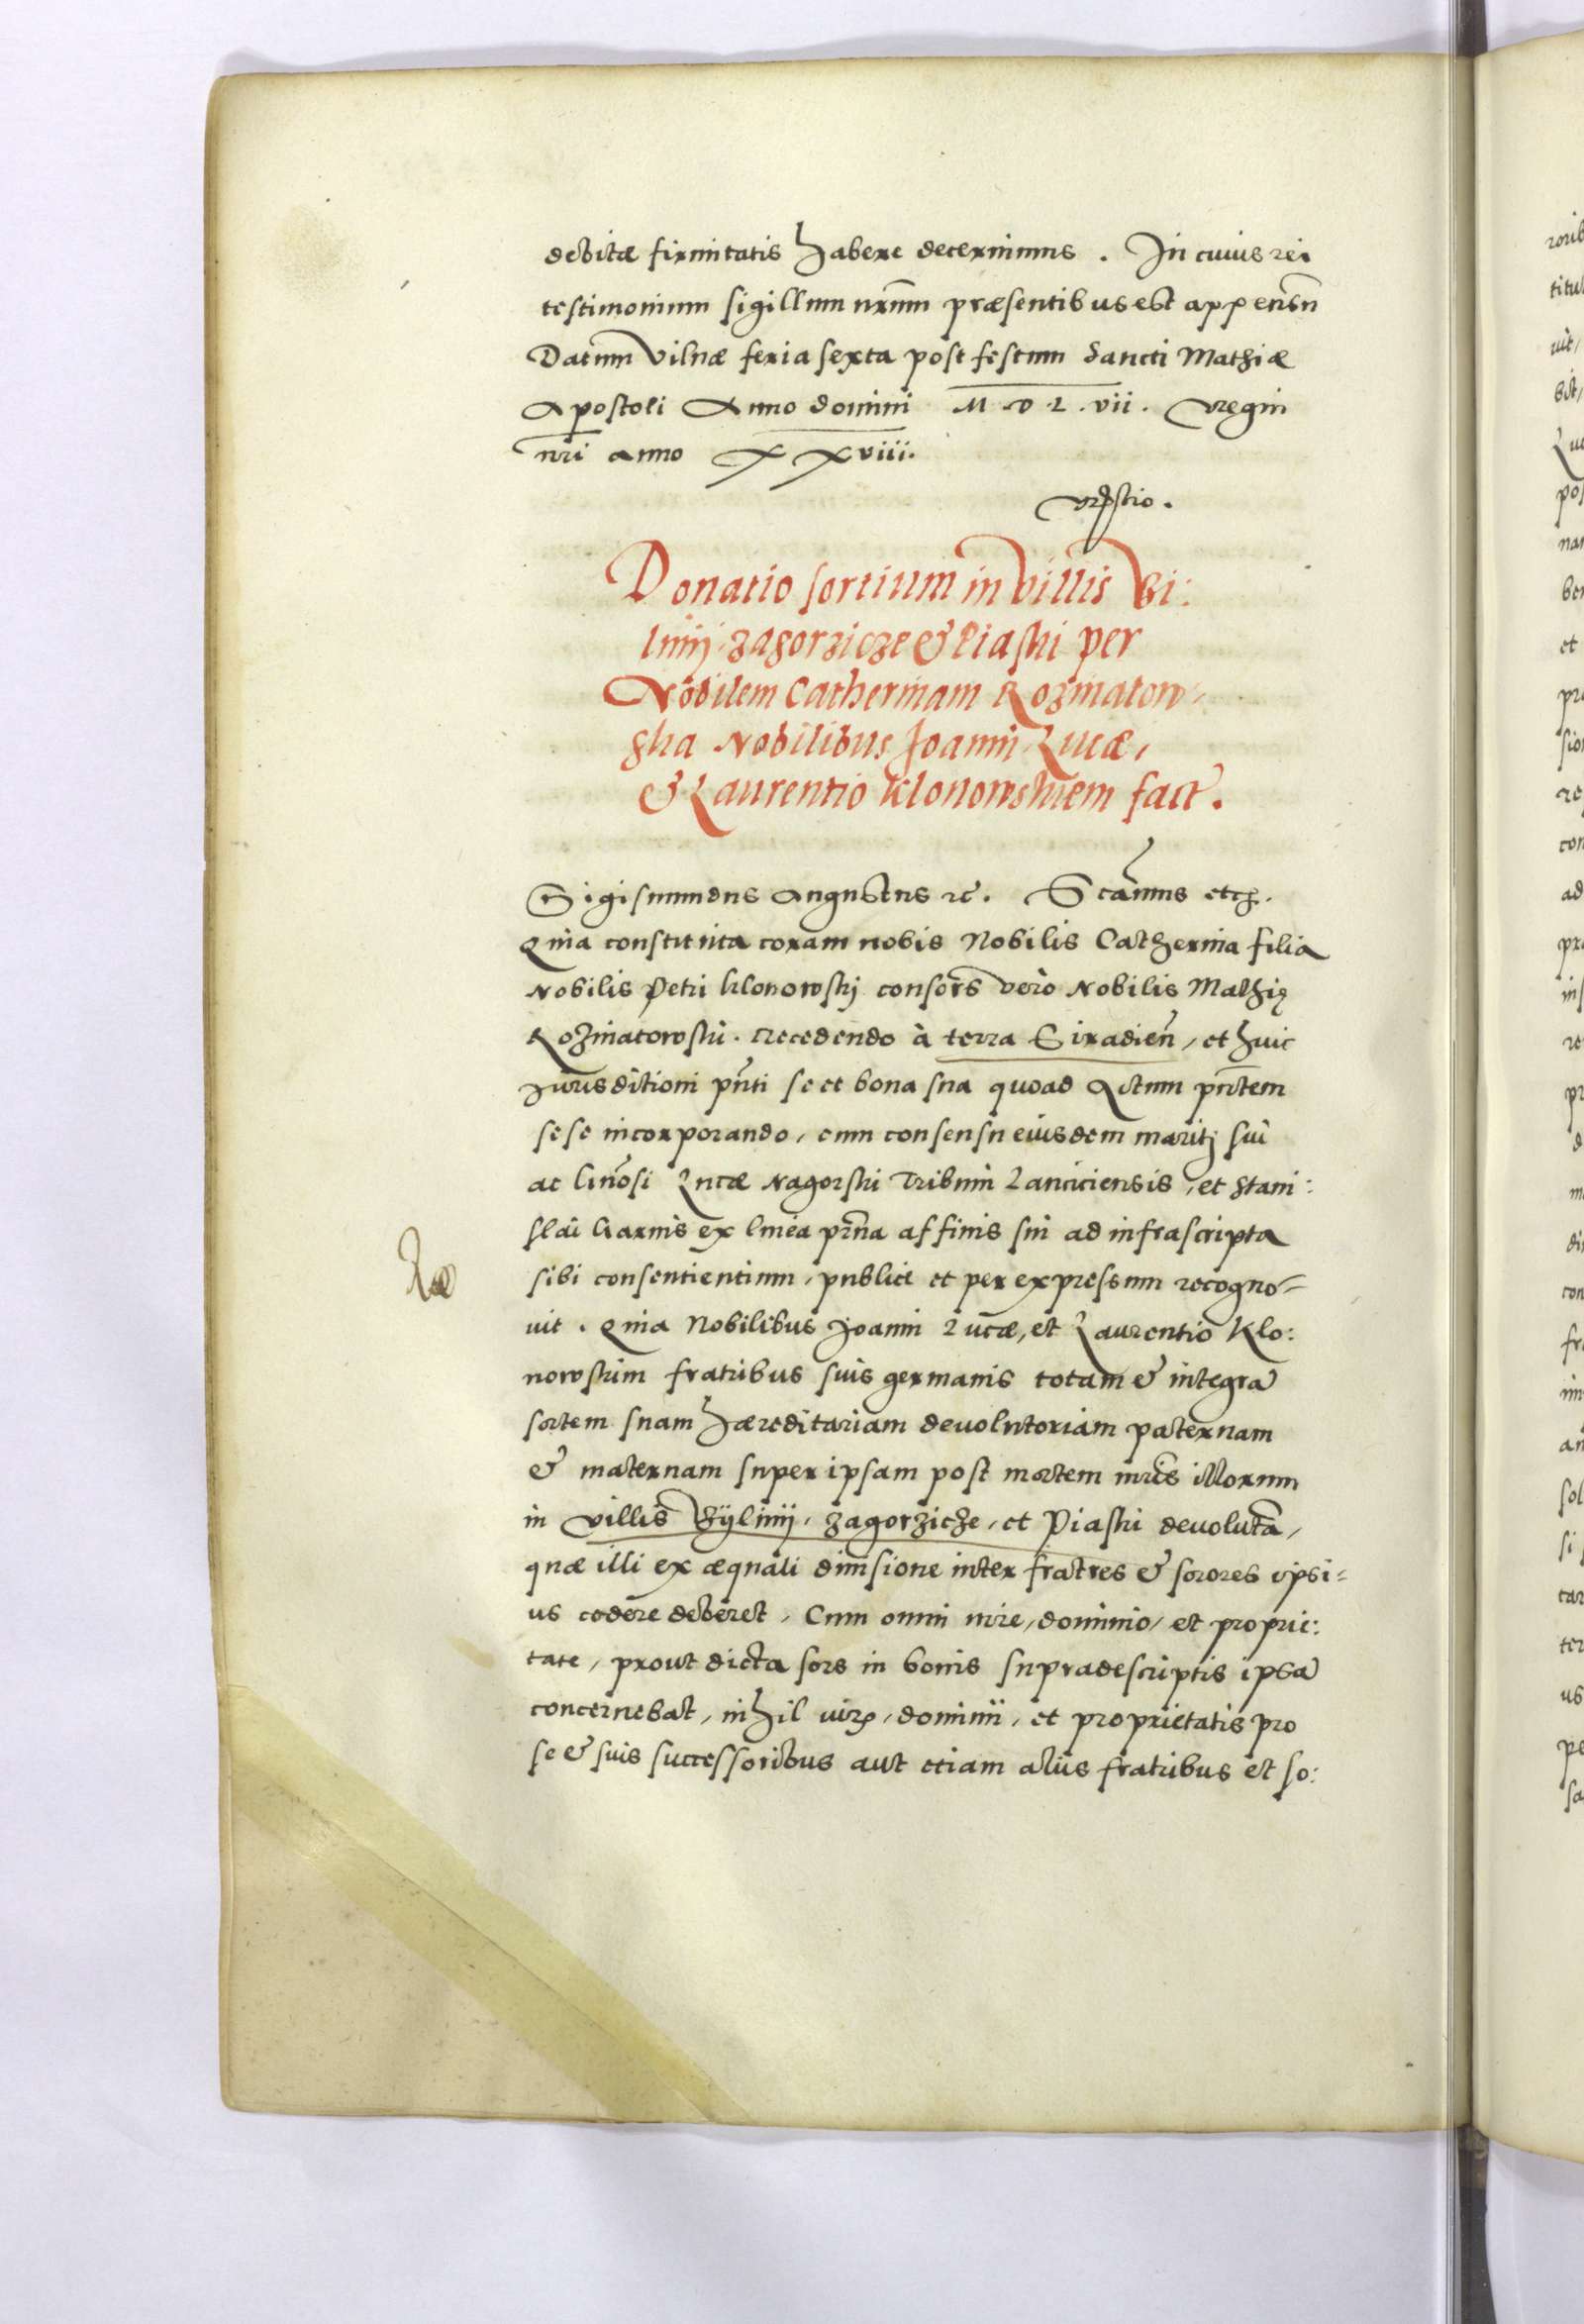 debitæ firmitatis habere decernimus. In cuius rei
testimonium sigillum nr̃um præsentibus est appensũ
Datum Vilnæ feria sexta post festum Sancti Mathiæ
Apostoli Anno domini M.D.L.vii. Regni
nr̃i anno XXviii.
Donatio sortium in villis Bi:
linij, Zagorzicze & Piaski per
Nobilem Catherinam Rozniatow-
ska Nobilibus Joanni Lucæ,
& Laurentio Klonowskiem fact.
Sigismundus Augustus ꝛc. Sc̃amus etc.
Quia constituta coram nobis Nobilis Catherina filia
Nobilis Petri Klonowskj consors vero Nobilis Mathię
Rozniatowski. recedendo à terra Siradien̄, et huic
Jurisditioni pñti se et bona sua quoad Actum pñtem
sese incorporando, cum consensu eiusdem maritj sui
ac Gñosi Lucæ Nagorski Tribuni Lanciciensis, et Stani:
slai Garnis ex linea pr̃na affinis sui ad infrascripta
sibi consentientium, publice et per expressum recogno-
uit. Quia Nobilibus Joanni Lucæ, et Laurentio Klo:
nowskim fratribus suis germanis totam & integrã
sortem suam hæreditariam deuolutoriam paternam
& maternam super ipsam post mortem illorum
in villis Bÿlinij, Zagorzicze, et Piaski deuolutã,
quæ illi ex æquali diuisione inter fratres & sorores ipsi-
us cedere deberet, Cum omni iure, dominio, et proprie:
tate, prout dicta sors in bonis supradescriptis ipsã
concernebat, nihil iurꝭ, dominii, et proprietatis pro
se & suis successoribus aut etiam aliis fratribus et so: